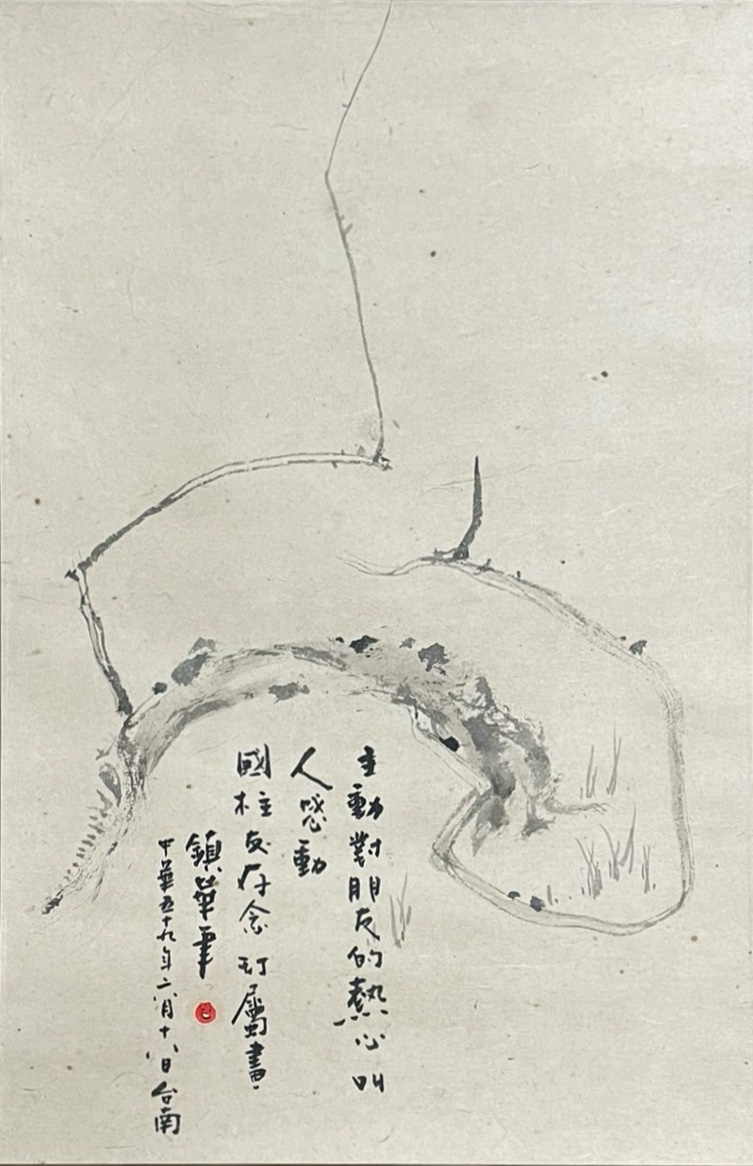 主動對朋友的熱心叫
人感動
國柱友存念 屬畫
鎮華筆
中華五十九年六月十八日台南